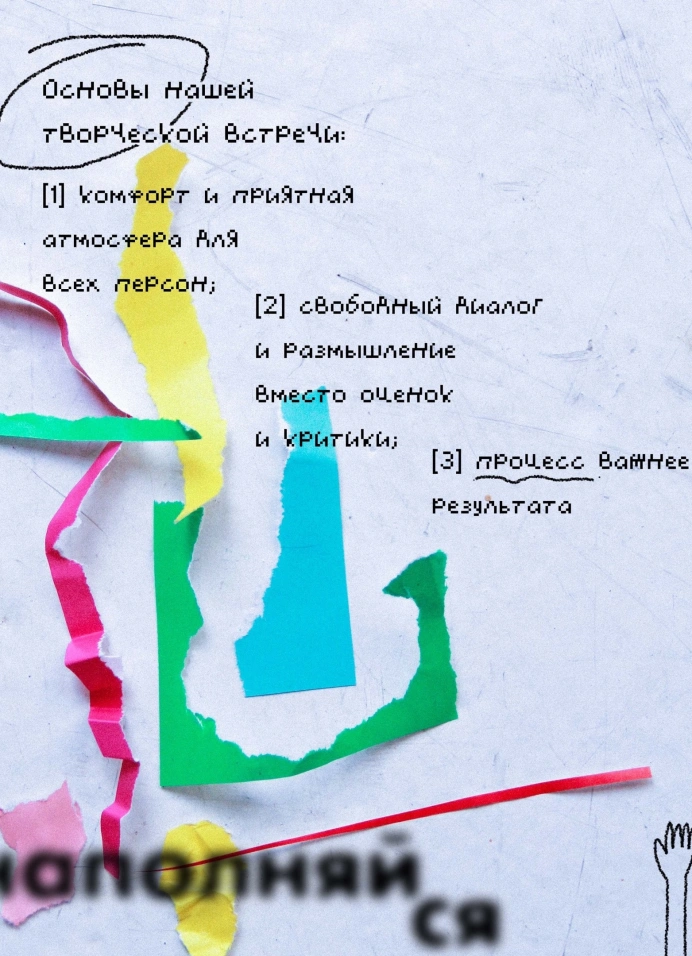 Основы нашей
творческой встречи:
[1] комфорт и приятная
атмосфера для
всех персон;
[2] свободный диалог
и размышление
вместо оценок
и критики;
[3] процесс важнее
результата
наполняй
ся